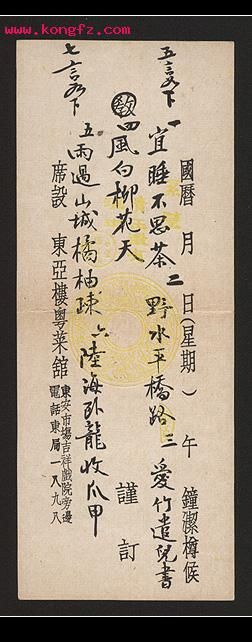 www.kongfz.com
國曆 月 日(星期 )午 鐘潔樽候
謹訂
席設 東亞樓粵菜館
東安市場吉祥戲院旁邊
電話東局一八九八
五言各下
一 宜睡不思茶 二 野水平橋路 三 愛竹遣兒書
四 風白柳花天
七言各下
五 雨過山城橘柚疎 六 陸海臥龍收爪甲